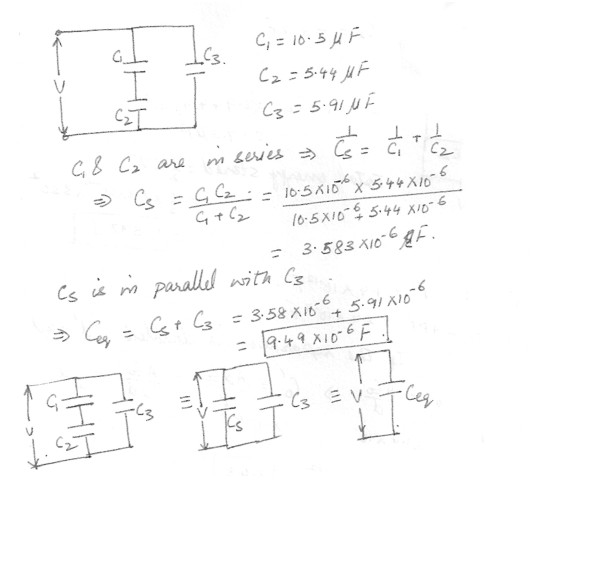 C₁ C₃. C₁ = 10.5 μF
V C₂ = 5.44 μF
C₂ C₃ = 5.91 μF
C₁ & C₂ are in series ⇒ 1/Cs = 1/C₁ + 1/C₂
⇒ Cs = C₁C₂/(C₁+C₂) = (10.5×10⁻⁶ × 5.44×10⁻⁶)/(10.5×10⁻⁶ + 5.44×10⁻⁶)
= 3.583×10⁻⁶ F.
Cs is in parallel with C₃.
⇒ Ceq = Cs + C₃ = 3.58×10⁻⁶ + 5.91×10⁻⁶
= 9.49×10⁻⁶ F.
V C₁ C₂ C₃ ≡ V Cs C₃ ≡ V Ceq